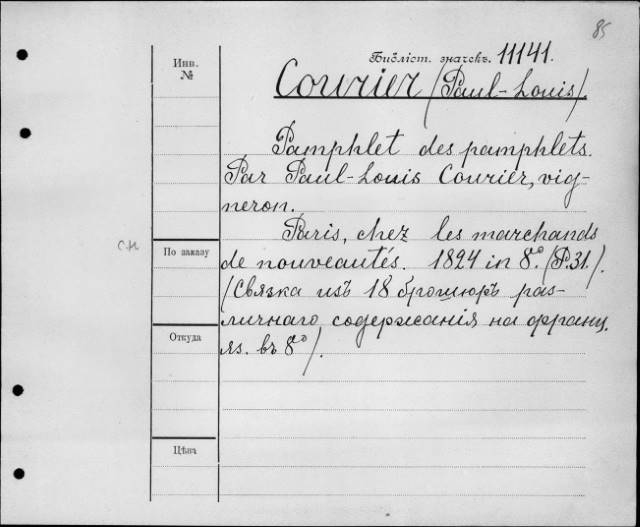 85
Инв. №
Библіст. значекъ. 11141.
Courier (Paul-Louis)
Pamphlet des pamphlets.
Par Paul-Louis Courier, vig-
neron.
Paris, chez les marchands
de nouveautés. 1824 in 8º. (P. 31.).
(Связка изъ 18 брошюръ раз-
личнаго содержанія на франц.
яз. въ 8º).
С.Н
По заказу
Откуда
Цѣна